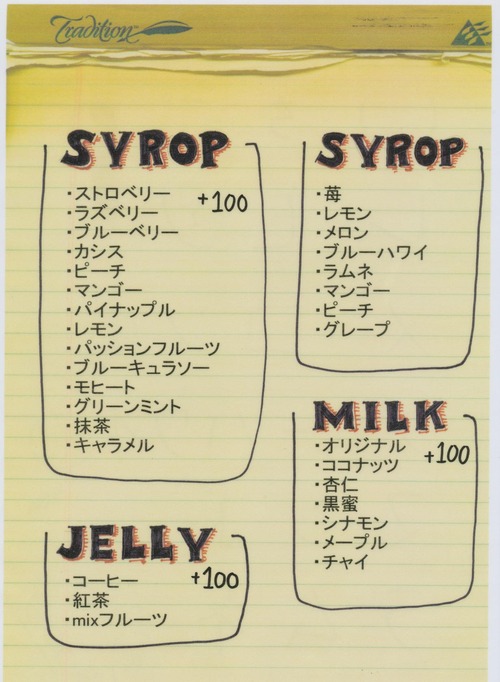 Tradition
SYROP
・ストロベリー
+100
・ラズベリー
・ブルーベリー
・カシス
・ピーチ
・マンゴー
・パイナップル
・レモン
・パッションフルーツ
・ブルーキュラソー
・モヒート
・グリーンミント
・抹茶
・キャラメル
JELLY
・コーヒー
+100
・紅茶
・mixフルーツ
SYROP
・苺
・レモン
・メロン
・ブルーハワイ
・ラムネ
・マンゴー
・ピーチ
・グレープ
MILK
・オリジナル
+100
・ココナッツ
・杏仁
・黒蜜
・シナモン
・メープル
・チャイ